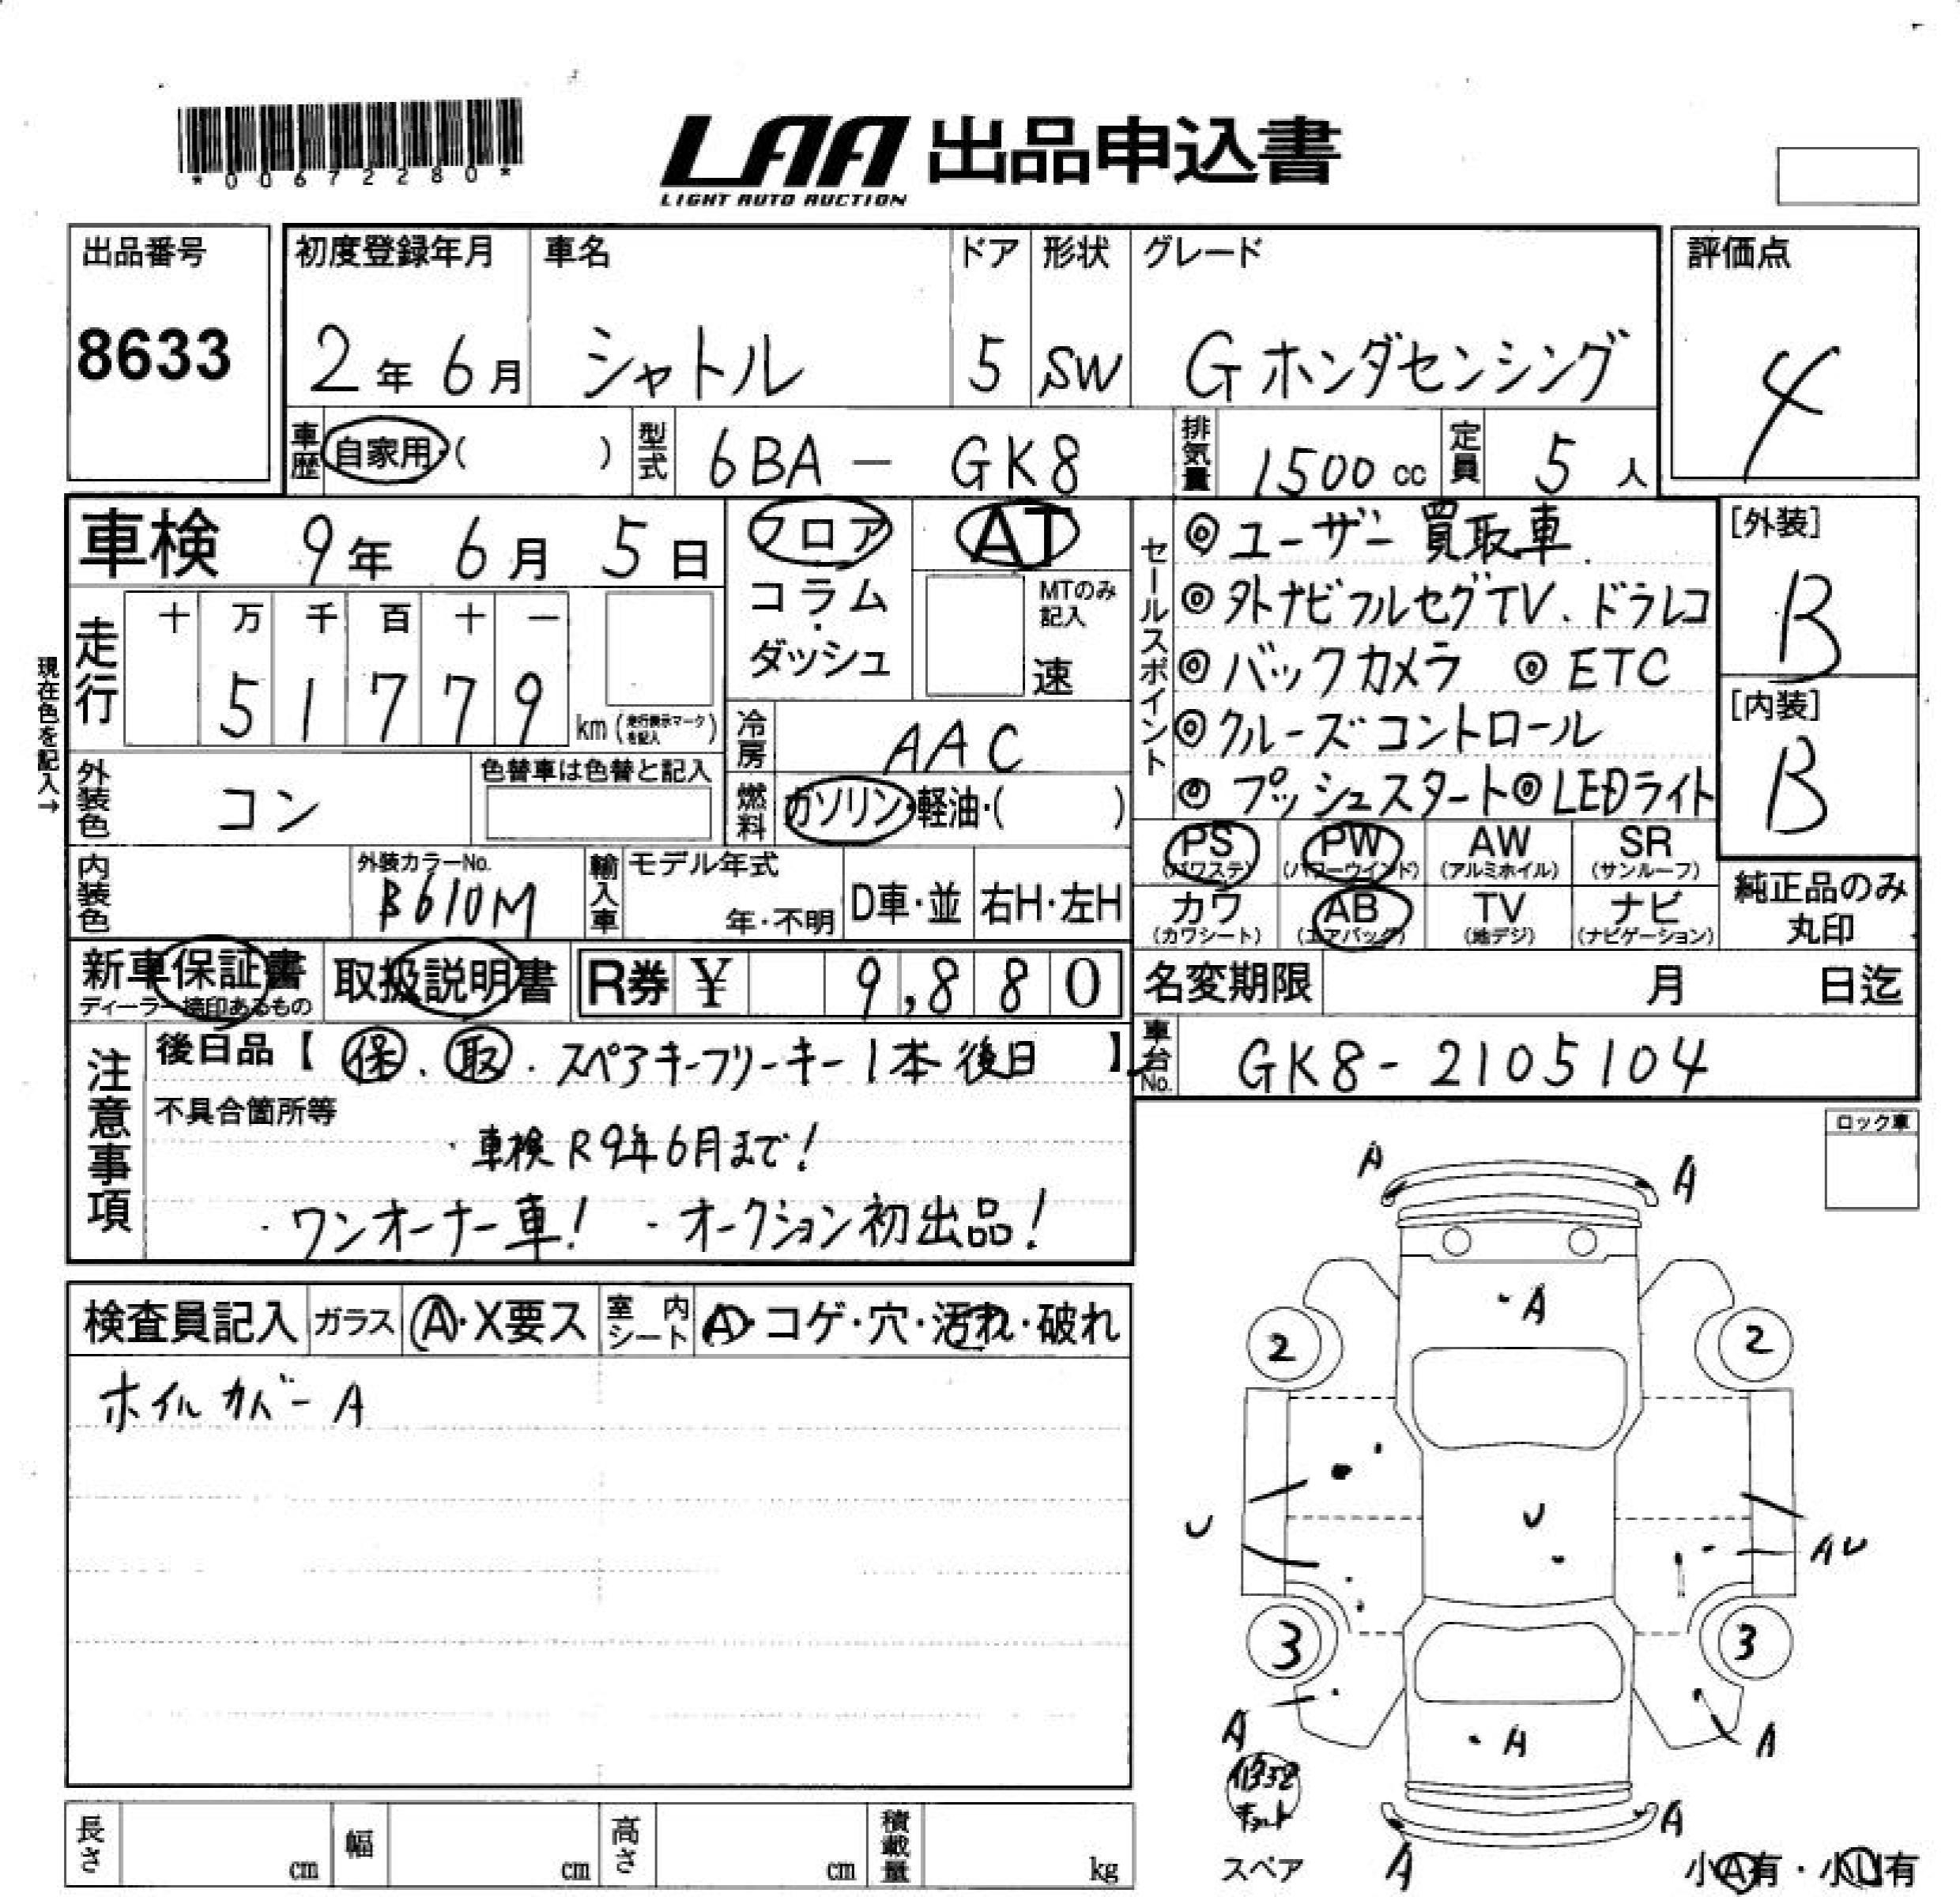 *00672280*
LAA 出品申込書
LIGHT AUTO AUCTION
出品番号
8633
初度登録年月 車名 ドア 形状 グレード
2年 6月 シャトル 5 SW Gホンダセンシング
評価点
4
車歴 自家用・( ) 型式 6BA - GK8 排気量 1500 cc 定員 5 人
車検 9年 6月 5日
フロア
コラム
・
ダッシュ
AT
MTのみ記入
速
走行 十 万 千 百 十 一
5 1 7 7 9 km (走行表示マークを記入)
現在色を記入→
外装色 コン 色替車は色替と記入
冷房 AAC
燃料 ガソリン・軽油・( )
セールスポイント
◎ユーザー買取車
◎外ナビフルセグTV、ドラレコ
◎バックカメラ ◎ETC
◎クルーズコントロール
◎プッシュスタート◎LEDライト
[外装]
B
[内装]
B
内装色 外装カラーNo.
B610M
輸入車 モデル年式
年・不明 D車・並 右H・左H
PS (パワステ) PW (パワーウインド) AW (アルミホイル) SR (サンルーフ)
カワ (カワシート) AB (エアバッグ) TV (地デジ) ナビ (ナビゲーション)
純正品のみ
丸印
新車保証書
ディーラー捺印あるもの
取扱説明書 R券 ¥ 9,880
名変期限 月 日迄
車台No. GK8-2105104
注意事項
後日品【 保、取、スペアキーフリーキー1本後日 】
不具合箇所等
・車検R9年6月まで!
・ワンオーナー車! ・オークション初出品!
ロック車
検査員記入 ガラス A・X要ス 室内シート A・コゲ・穴・汚れ・破れ
ホイルカバーA
A A
A
2 2
U U AU
3 3
A A A
キット
スペア
A A
小A有・小U有
長さ cm 幅 cm 高さ cm 積載量 kg